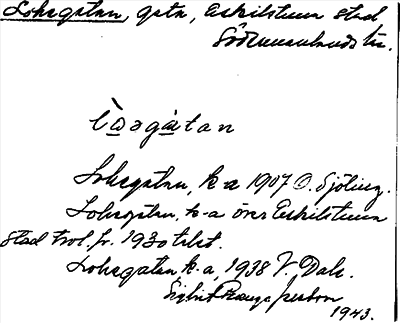 Lohegatan, gata, Eskilstuna stad
Södermanlands län.
lo̱agatan
Lohegatan, k-a 1907 O. Sjöling.
Lohegatan, k-a över Eskilstuna
stad trol. fr. 1930talet.
Lohegatan, k-a, 1938 V. Dahl.
1943.